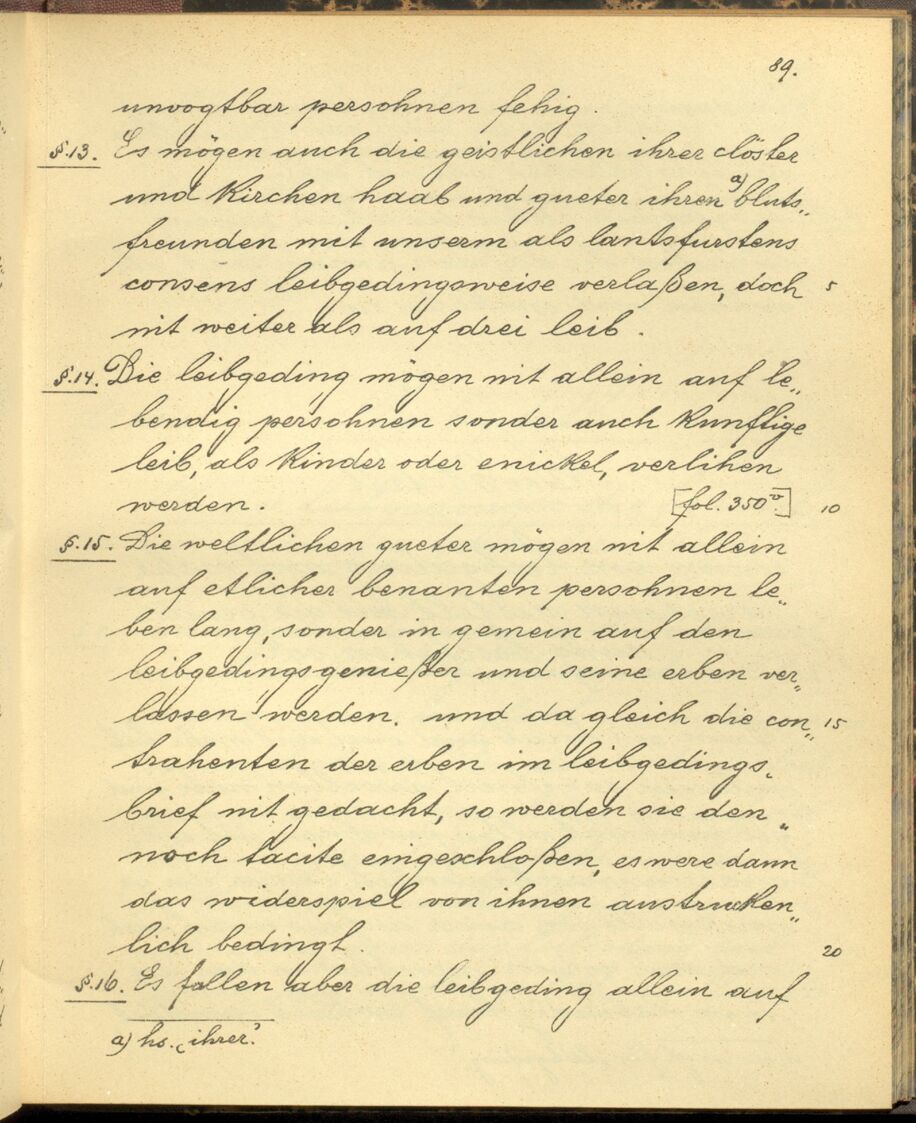 89.
unvogtbar persohnen fehig.
§.13. Es mögen auch die geistlichen ihrer clöster
und Kirchen haab und gueter ihren a) bluts„
freunden mit unserm als lantsfurstens
consens leibgedingsweise verlaßen, doch 5
nit weiter als auf drei leib.
§.14. Die leibgeding mögen nit allein auf le„
bendig persohnen sonder auch kunftige
leib, als Kinder oder enickel, verlihen
werden. [fol. 350v.] 10
§.15. Die weltlichen gueter mögen nit allein
auf etlicher benanten persohnen le„
ben lang, sonder in gemein auf den
leibgedingsgenießer und seine erben ver„
lassen werden. und da gleich die con„ 15
trahenten der erben im leibgedings„
brief nit gedacht, so werden sie den„
noch tacite eingeschloßen, es were dann
das widerspiel von ihnen austrucken„
lich bedingt. 20
§.16. Es fallen aber die leibgeding allein auf
a) hs. ‚ihrer‘.